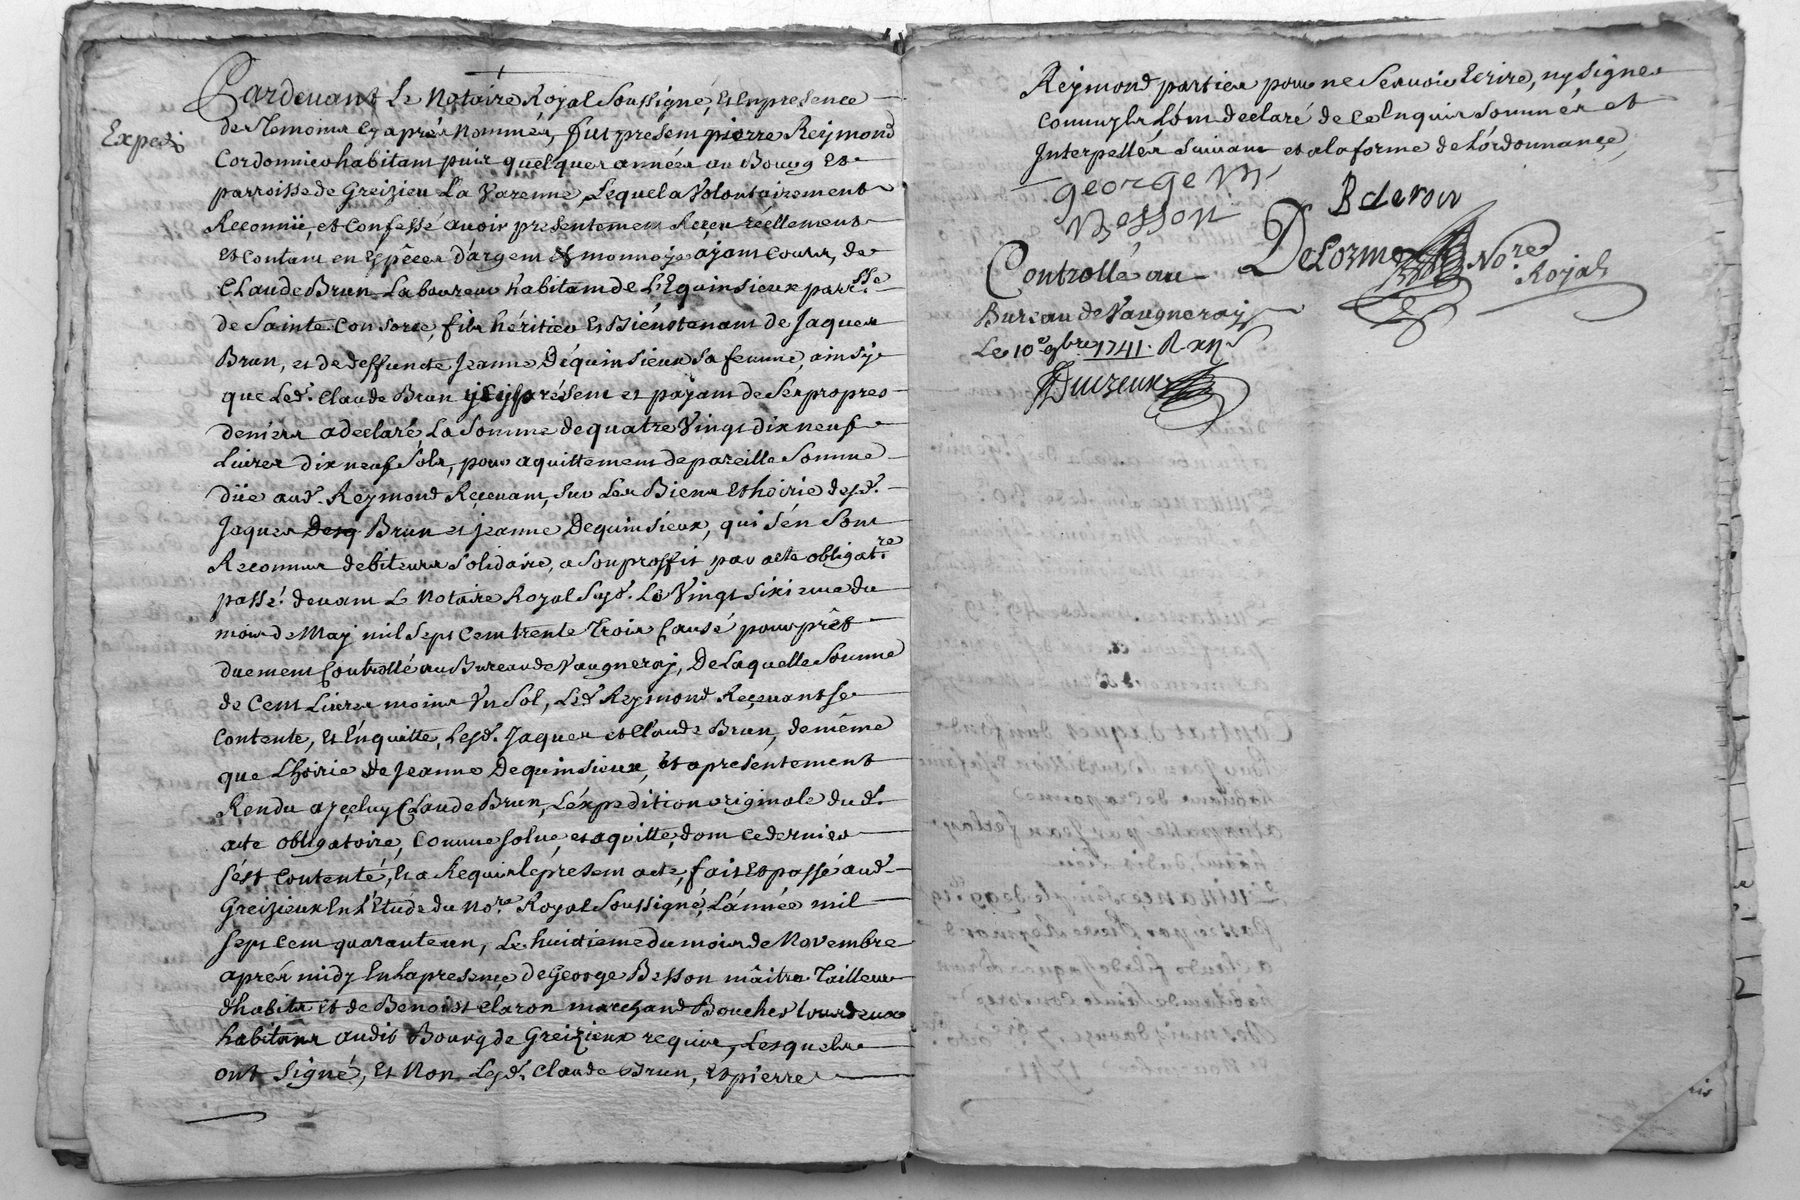 Pardevant Le Notaire Royal Soussigné, Et En presence
des Temoins Cy aprés Nommés, fut present pierre Reymond
Expedié
Cordonnier habitant puis quelques années au Bourg et
parroisse de Greizieu La Varenne, Lequel a Volontairement
Reconnü, et Confessé avoir presentement Reçeu réellement
et Contant en Espêces d'argent et monnoye ayant Cours, de
Claude Brun Laboureur habitant de L'Equinsieux parr.sse
de Sainte Consorce, fils héritier et Bientenant de Jaques
Brun, et de deffuncte Jeanne Dequinsieux sa femme, ainsy
que Led. Claude Brun ycy présent et payant de Ses propres
deniers a declaré, La Somme de quatre Vingt dix neuf
Livres dix neuf Sols, pour aquittement de pareille Somme
düe aud. Reymond Reçevant, sur Les Biens et hoirie desd.
Jaques Deq Brun et Jeanne Dequinsieux, qui s'én Sont
Reconnus debiteurs Solidaire, a Son proffit par acte obligat.re
passé devant Le Notaire Royal Susd. Le Vingt sixieme du
mois de May mil Sept Cent trente trois Causé pour prêt
duement Controllé au Bureau de Vaugneray, De Laquelle Somme
de Cent Livres moins Un Sol, Led. Reymond Reçevant se
Contente, et En quitte, Lesd. Jaques et Claude Brun, de même
que L'hoirie de Jeanne Dequinsieux, et a presentement
Rendu a yçeluy Claude Brun, L'éxpedition originale dud.
acte obligatoire, Comme solue, et aquitté, dont ce dernier
s'ést Contenté, et a Requis le present acte, fait et passé aud.
Greizieux En L'Etude du No.re Royal Soussigné, L'année mil
sept Cent quarante un, Le huitieme du mois de Novembre
aprés midy En la presençe de George Besson mâitre Tailleur
d'habits et de Benoist Claron marchand Boucher tous deux
habitans audit Bourg de Greizieux requis, Lesquels
ont Signé, et Non Lesd. Claude Brun, et pierre
Reymond parties pour ne Scavoir Ecrire, ny signer
Comme ils L'ont declaré de Ce Enquis Sommés et
Interpellés Suivant et a la forme de L'órdonnançe,
george
Besson
B claron
DeLorme No.re
Royal
Controllé au
Bureau de Vaugneray
Le 10e 9bre 1741. R